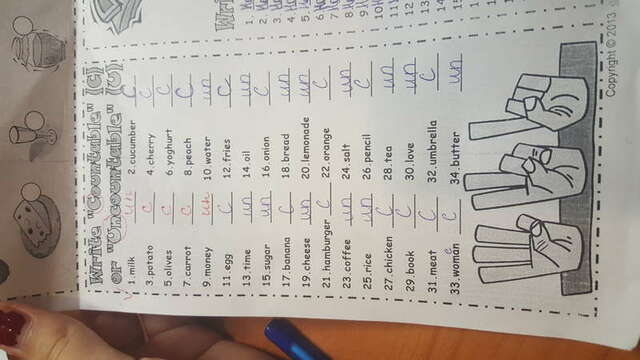 Write "Countable" (C)
or "Uncountable" (U)
1.milk un 2.cucumber C
3.potato C 4.cherry C
5.olives C 6.yoghurt C
7.carrot C 8.peach C
9.money un 10.water un
11.egg C 12.fries C
13.time un 14.oil un
15.sugar un 16.onion C
17.banana C 18.bread un
19.cheese un 20.lemonade un
21.hamburger C 22.orange C
23.coffee un 24.salt un
25.rice un 26.pencil C
27.chicken C 28.tea un
29.book C 30.love un
31.meat C 32.umbrella C
33.woman e C 34.butter un
Wri
1.
2.
3.
4.
5.
6.
7.
8.
9.
10
11
12
13
14
15
Copyright © 2013.